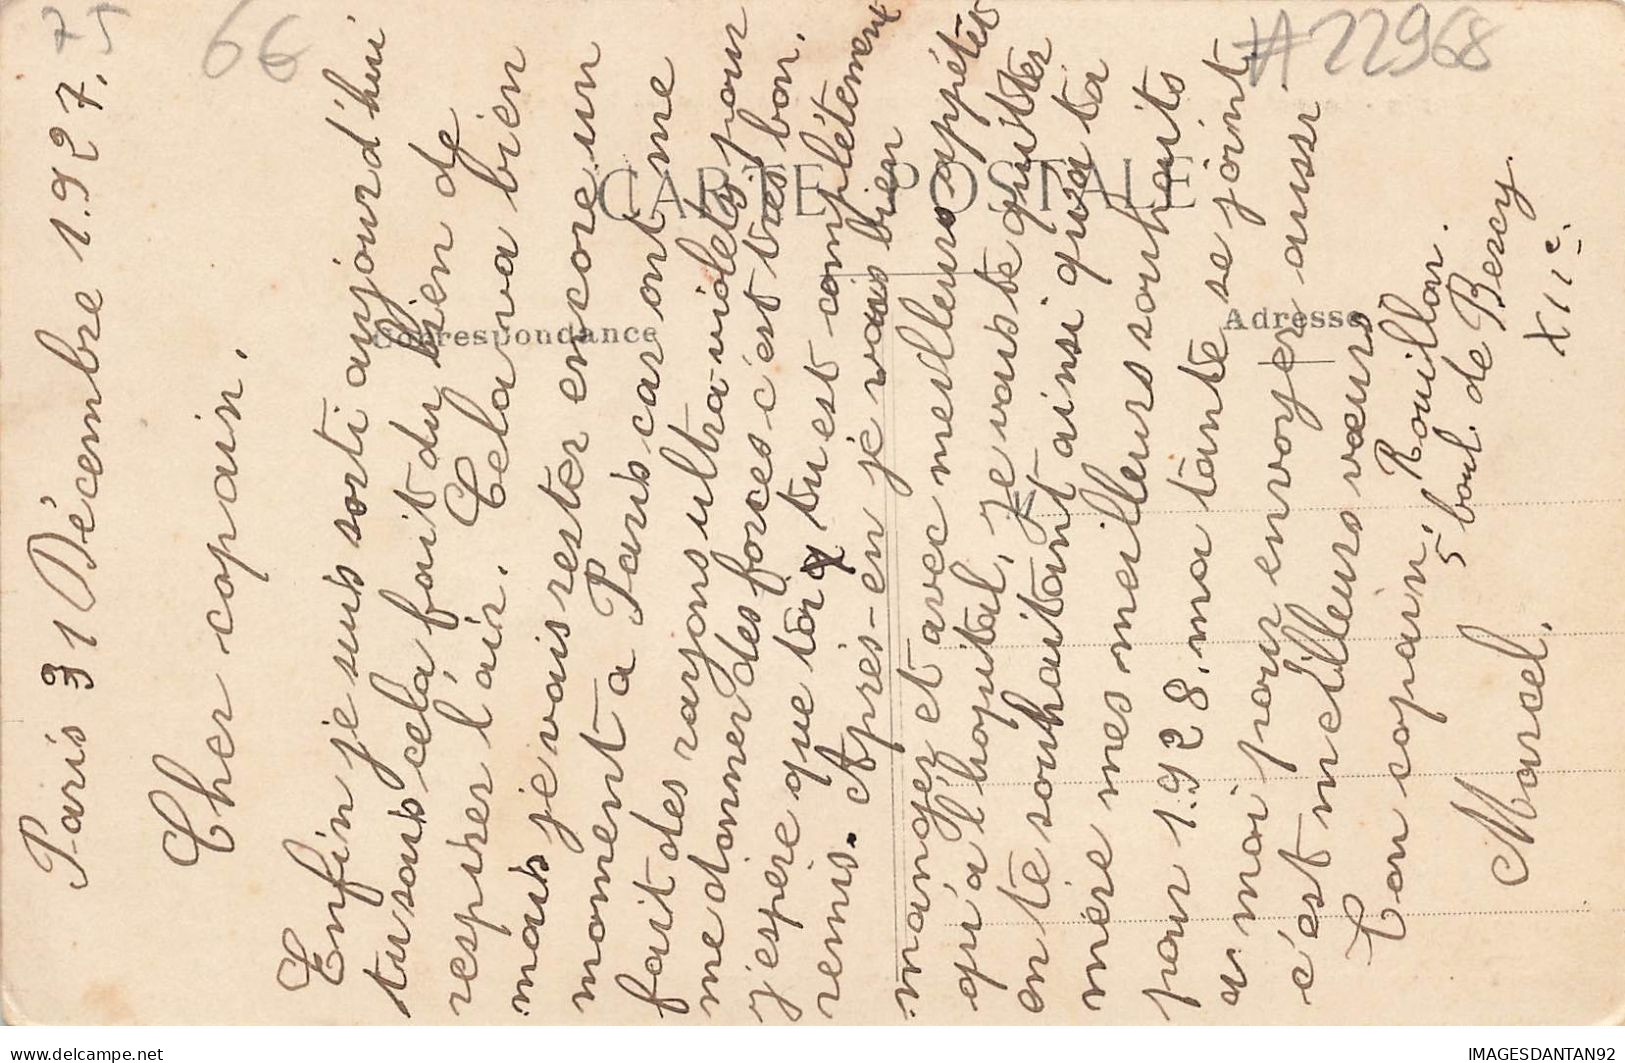 Paris 31 Décembre 1.927.
Cher copain.
Enfin je suis sorti aujourd'hui
tu sais cela fait du bien de
respirer l'air. Cela va bien
mais je vais rester encore un
moment a Paris car ont me
fait des rayons ultra-violets pour
me donner des forces c'est très bon.
j'espère que toi tu est complétement
remis. Après-en je vais bien
manger et avec meilleurs appétit
qu'a l'hopital, je vais te quitter
en te souhaitant ainsi qu'a ta
mère mes meilleurs souhaits
pour 1.928. ma tante se joint
a moi pour envoyer aussi
c'est meilleurs vœux
Ton copain, Rouillon.
5 boul. de Bercy
XIIe.
Marcel.
CARTE POSTALE
Correspondance
Adresse
75
66
#22968
delcampe.net
IMAGESDANTAN92